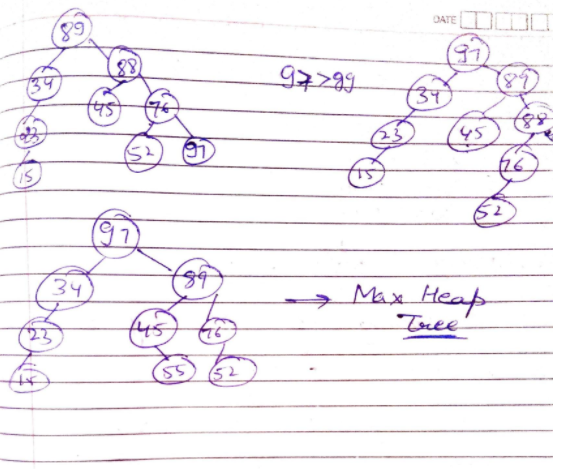 DATE
89
34 88
23 45 76
15 52 97
97>89
97
34 89
23 45 88
15 76
52
97
34 89
23 45 76
15 55 52
→ Max Heap
Tree